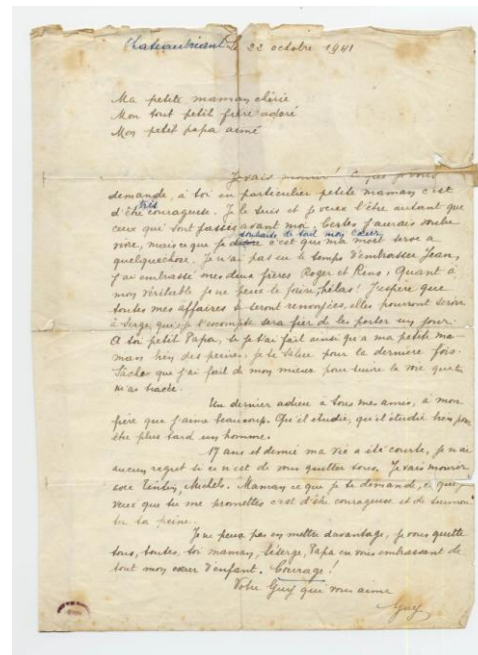 Chateaubriant le 22 octobre 1941
Ma petite maman chérie
Mon tout petit frère adoré
Mon petit papa aimé
Je vais mourir! Ce que je vous
demande, à toi en particulier petite maman c'est
d'être très courageuse. Je le suis et je veux l'être autant que
ceux qui sont passés avant moi. Certes j'aurais voulu
vivre, mais ce que je souhaite de tout mon cœur c'est que ma mort serve a
quelquechose. Je n'ai pas eu le temps d'embrasser Jean,
j'ai embrassé mes deux frères Roger et Rino, Quant à
mon véritable je ne peux le faire, hélas! J'espère que
toutes mes affaires te seront renvoyées, elles pourront servir
à Serge, qui je l'escompte sera fier de les porter un jour.
A toi petit Papa, si je t'ai fait ainsi qu'a ma petite ma-
man bien des peines, je te salue pour la dernière fois.
Saches que j'ai fait de mon mieux pour suivre la voie que tu
m'as tracée.
Un dernier adieu a tous mes amis, a mon
frère que j'aime beaucoup. Qu'il étudie, qu'il étudie bien pour
être plus tard un homme.
17 ans et demi ma vie a été courte, je n'ai
aucun regret si ce n'est de vous quitter tous. Je vais mourir
avec Tintin, Michels. Maman ce que je te demande, ce que je
veux que tu me promettes c'est d'être courageuse et de surmon-
ter ta peine.
Je ne peux pas en mettre davantage, je vous quitte
tous, toutes, toi maman, Serge, Papa en vous embrassant de
tout mon cœur d'enfant. Courage!
Votre Guy qui vous aime
Guy